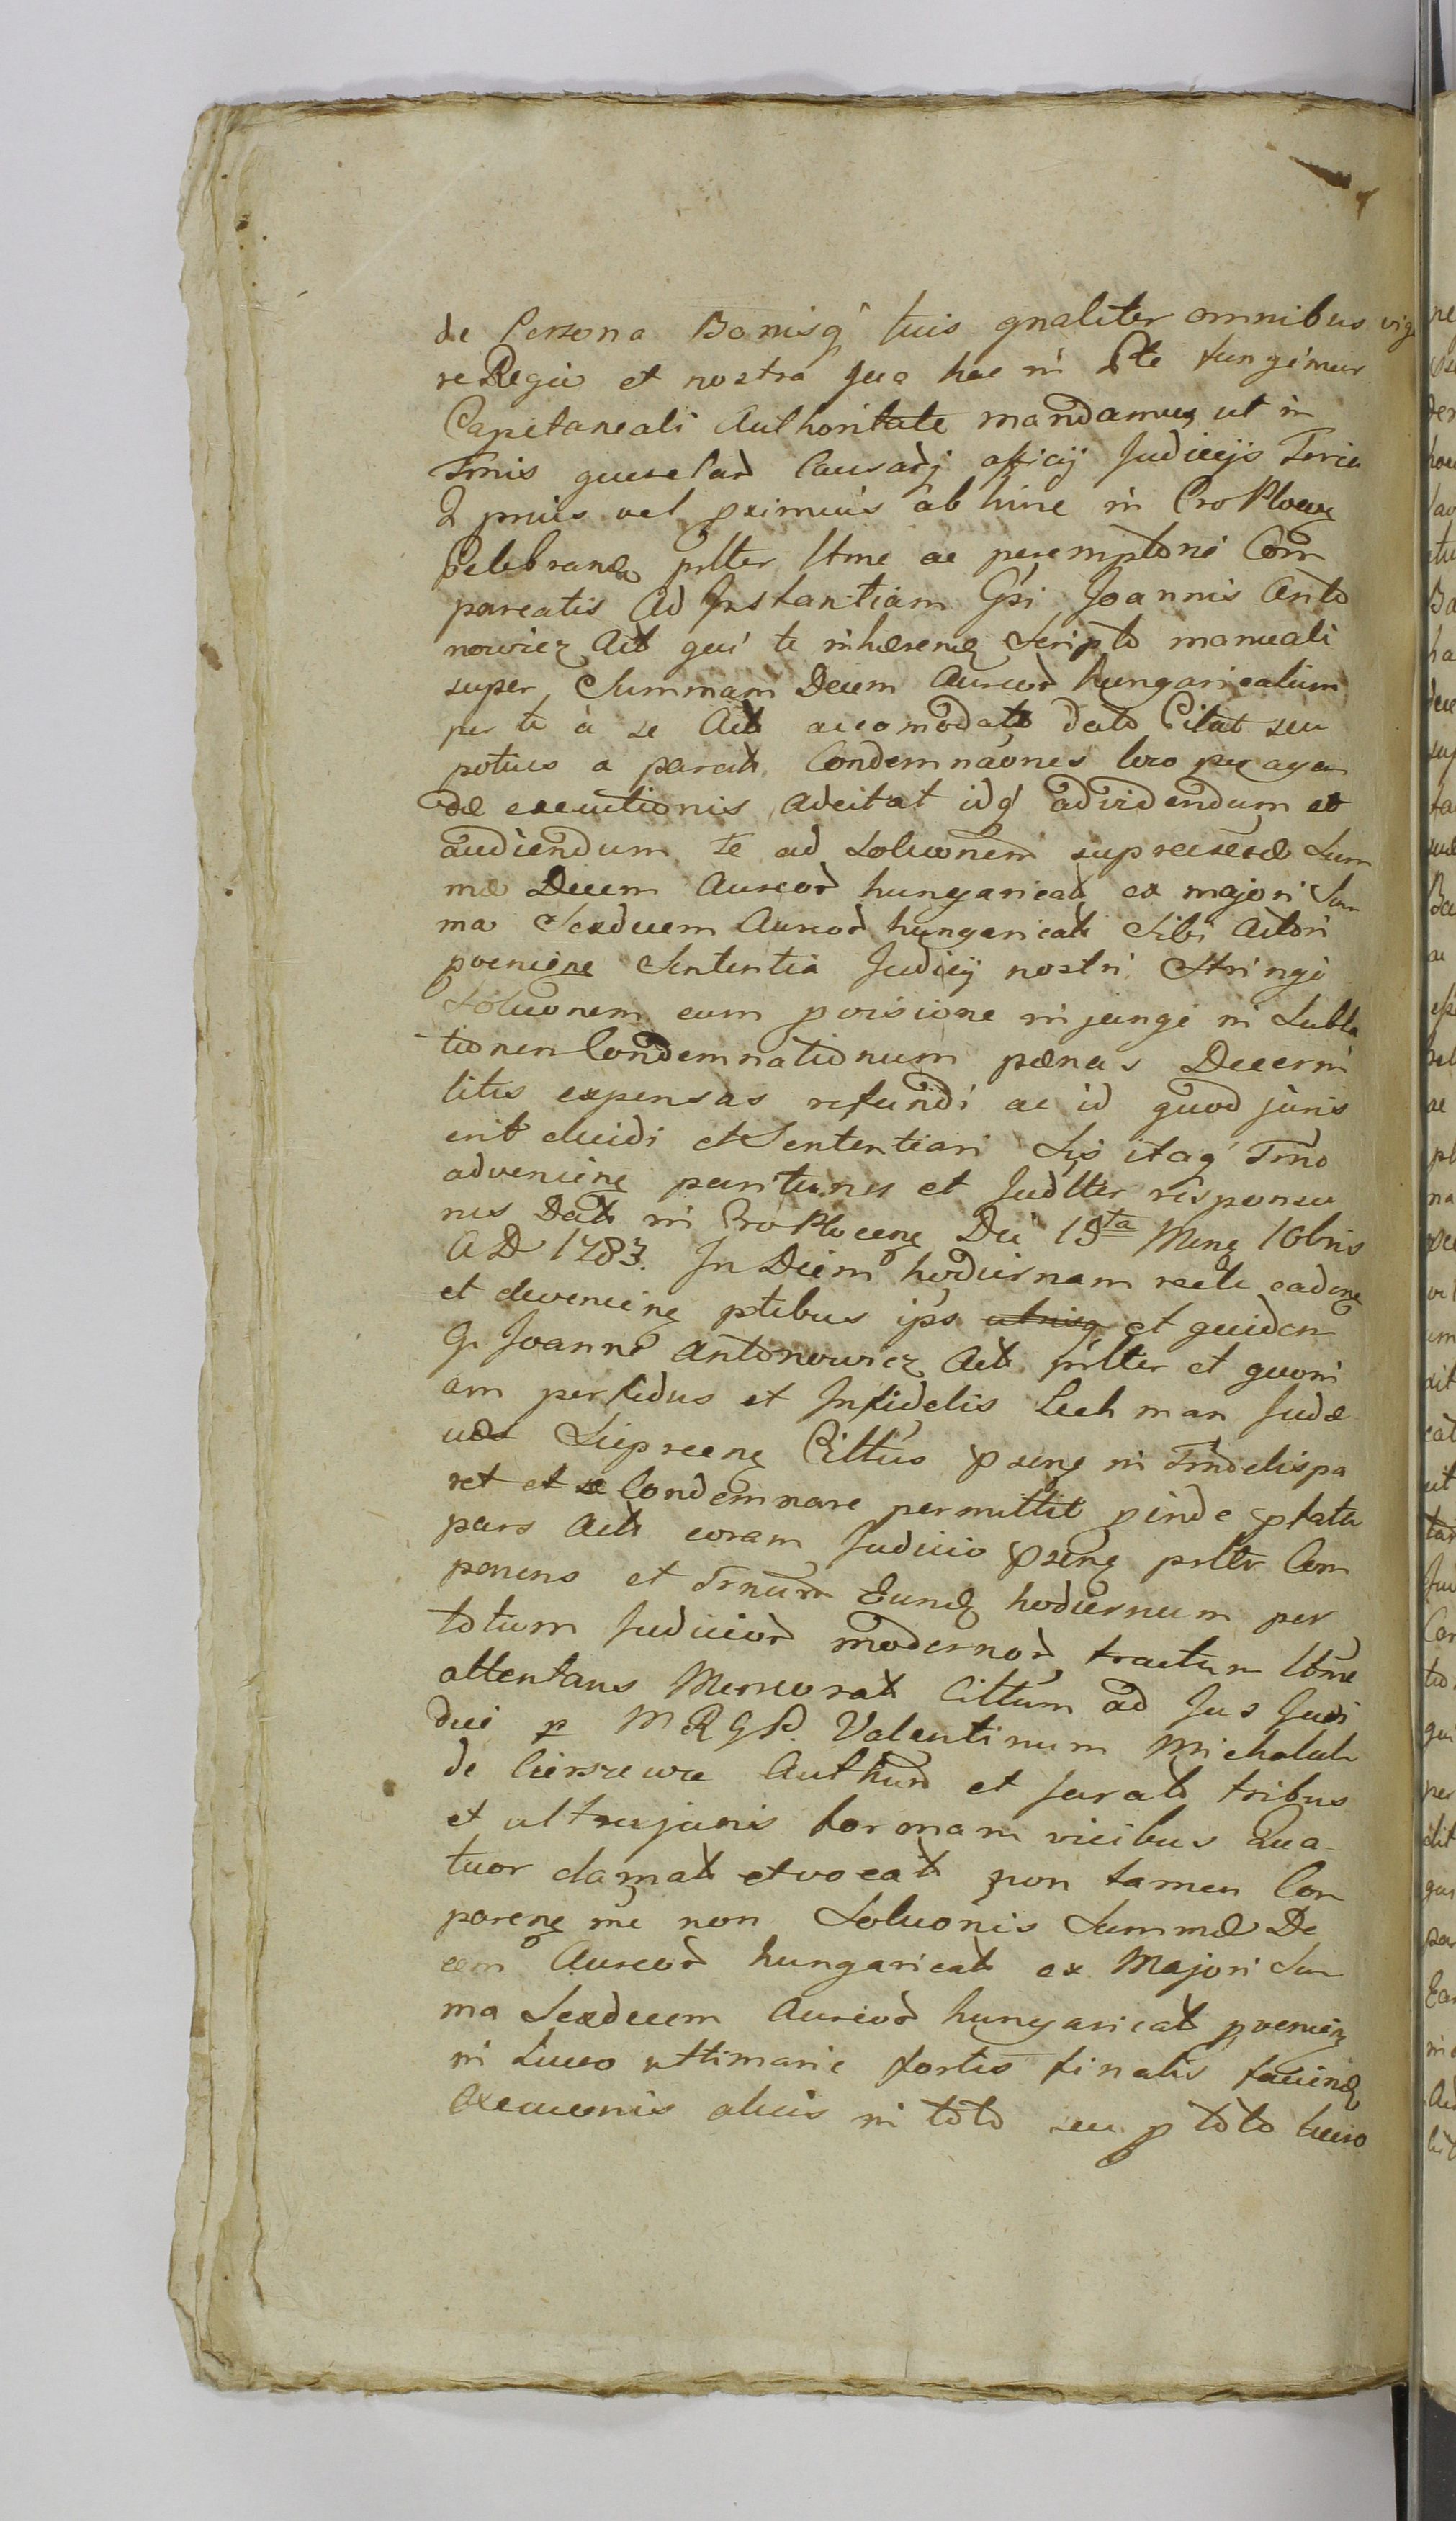 de Persona Bonisq tuis gnaliter omnibus vigo
re Regia et nostra qua hac in pte fungimur
Capitaneali Authoritate mandamus ut in
Tmis querelar Causarq officij Judicijs Feria
2 prius vel proximius ab hinc in Cro Plocen
Celebrand prlter ltme ac peremptorie Com
pareatis Ad Instantiam Gsi Joannis Anto
nowicz Act qui te inhaerend Scripto manuali
super Summam Decem Aureor hungaricalium
per te à se Act accomodat dato Citat seu
potius a parat Condemnaones loco peragen
dae executionis adcitat idq advidendum et
audiendum te ad Soluonem supraespsae Sum
mae Decem Aureor hungarical ex majori Sum
ma Sexdecem Aureor hungarical Sibi Actori
proveniene Sententia Judicij nostri Stringi
Soluonem cum provisione injungi in Subla
tionem Condemnationum paenas Decerni
litis expensas refundi ac id quod juris
erit decidi et Sententiari Sis itaq Tmo
adveniene pariturus et Judlter responsu
rus Dat in Cro Plocen Die 15ta Mens 10bris
A D 1783. In Diem hodiernam recte caden
et devenien ptibus ips et quidem
G. Joanne Antonowicz Act prlter et quoni
am perfidus et Infidelis Lechman Judae
us Sieprcen Cittus psens in Tmo elispa
ret et se Condemnare permittit proinde pfata
pars Act coram Judicio psens prlter Com
parens et Trnum Eund hodiernum per
totum Judicior modernor tractum ltme
attentans Memorat Cittum ad Jus Judi
cii p M R G P. Valentinum Michalak
de Cierszewa Authum et Jurat tribus
et ultra juris formam vicibus Qua
tuor clamat et vocat non tamen Com
paren me non Soluonis Summae De
cem Aureor hungarical ex Majori Sum
ma Sexdecem Aureor hungarical provenien
in Lucro ultimarie fortis finalis faciend
Execuonis alias in toto seu p toto lucro